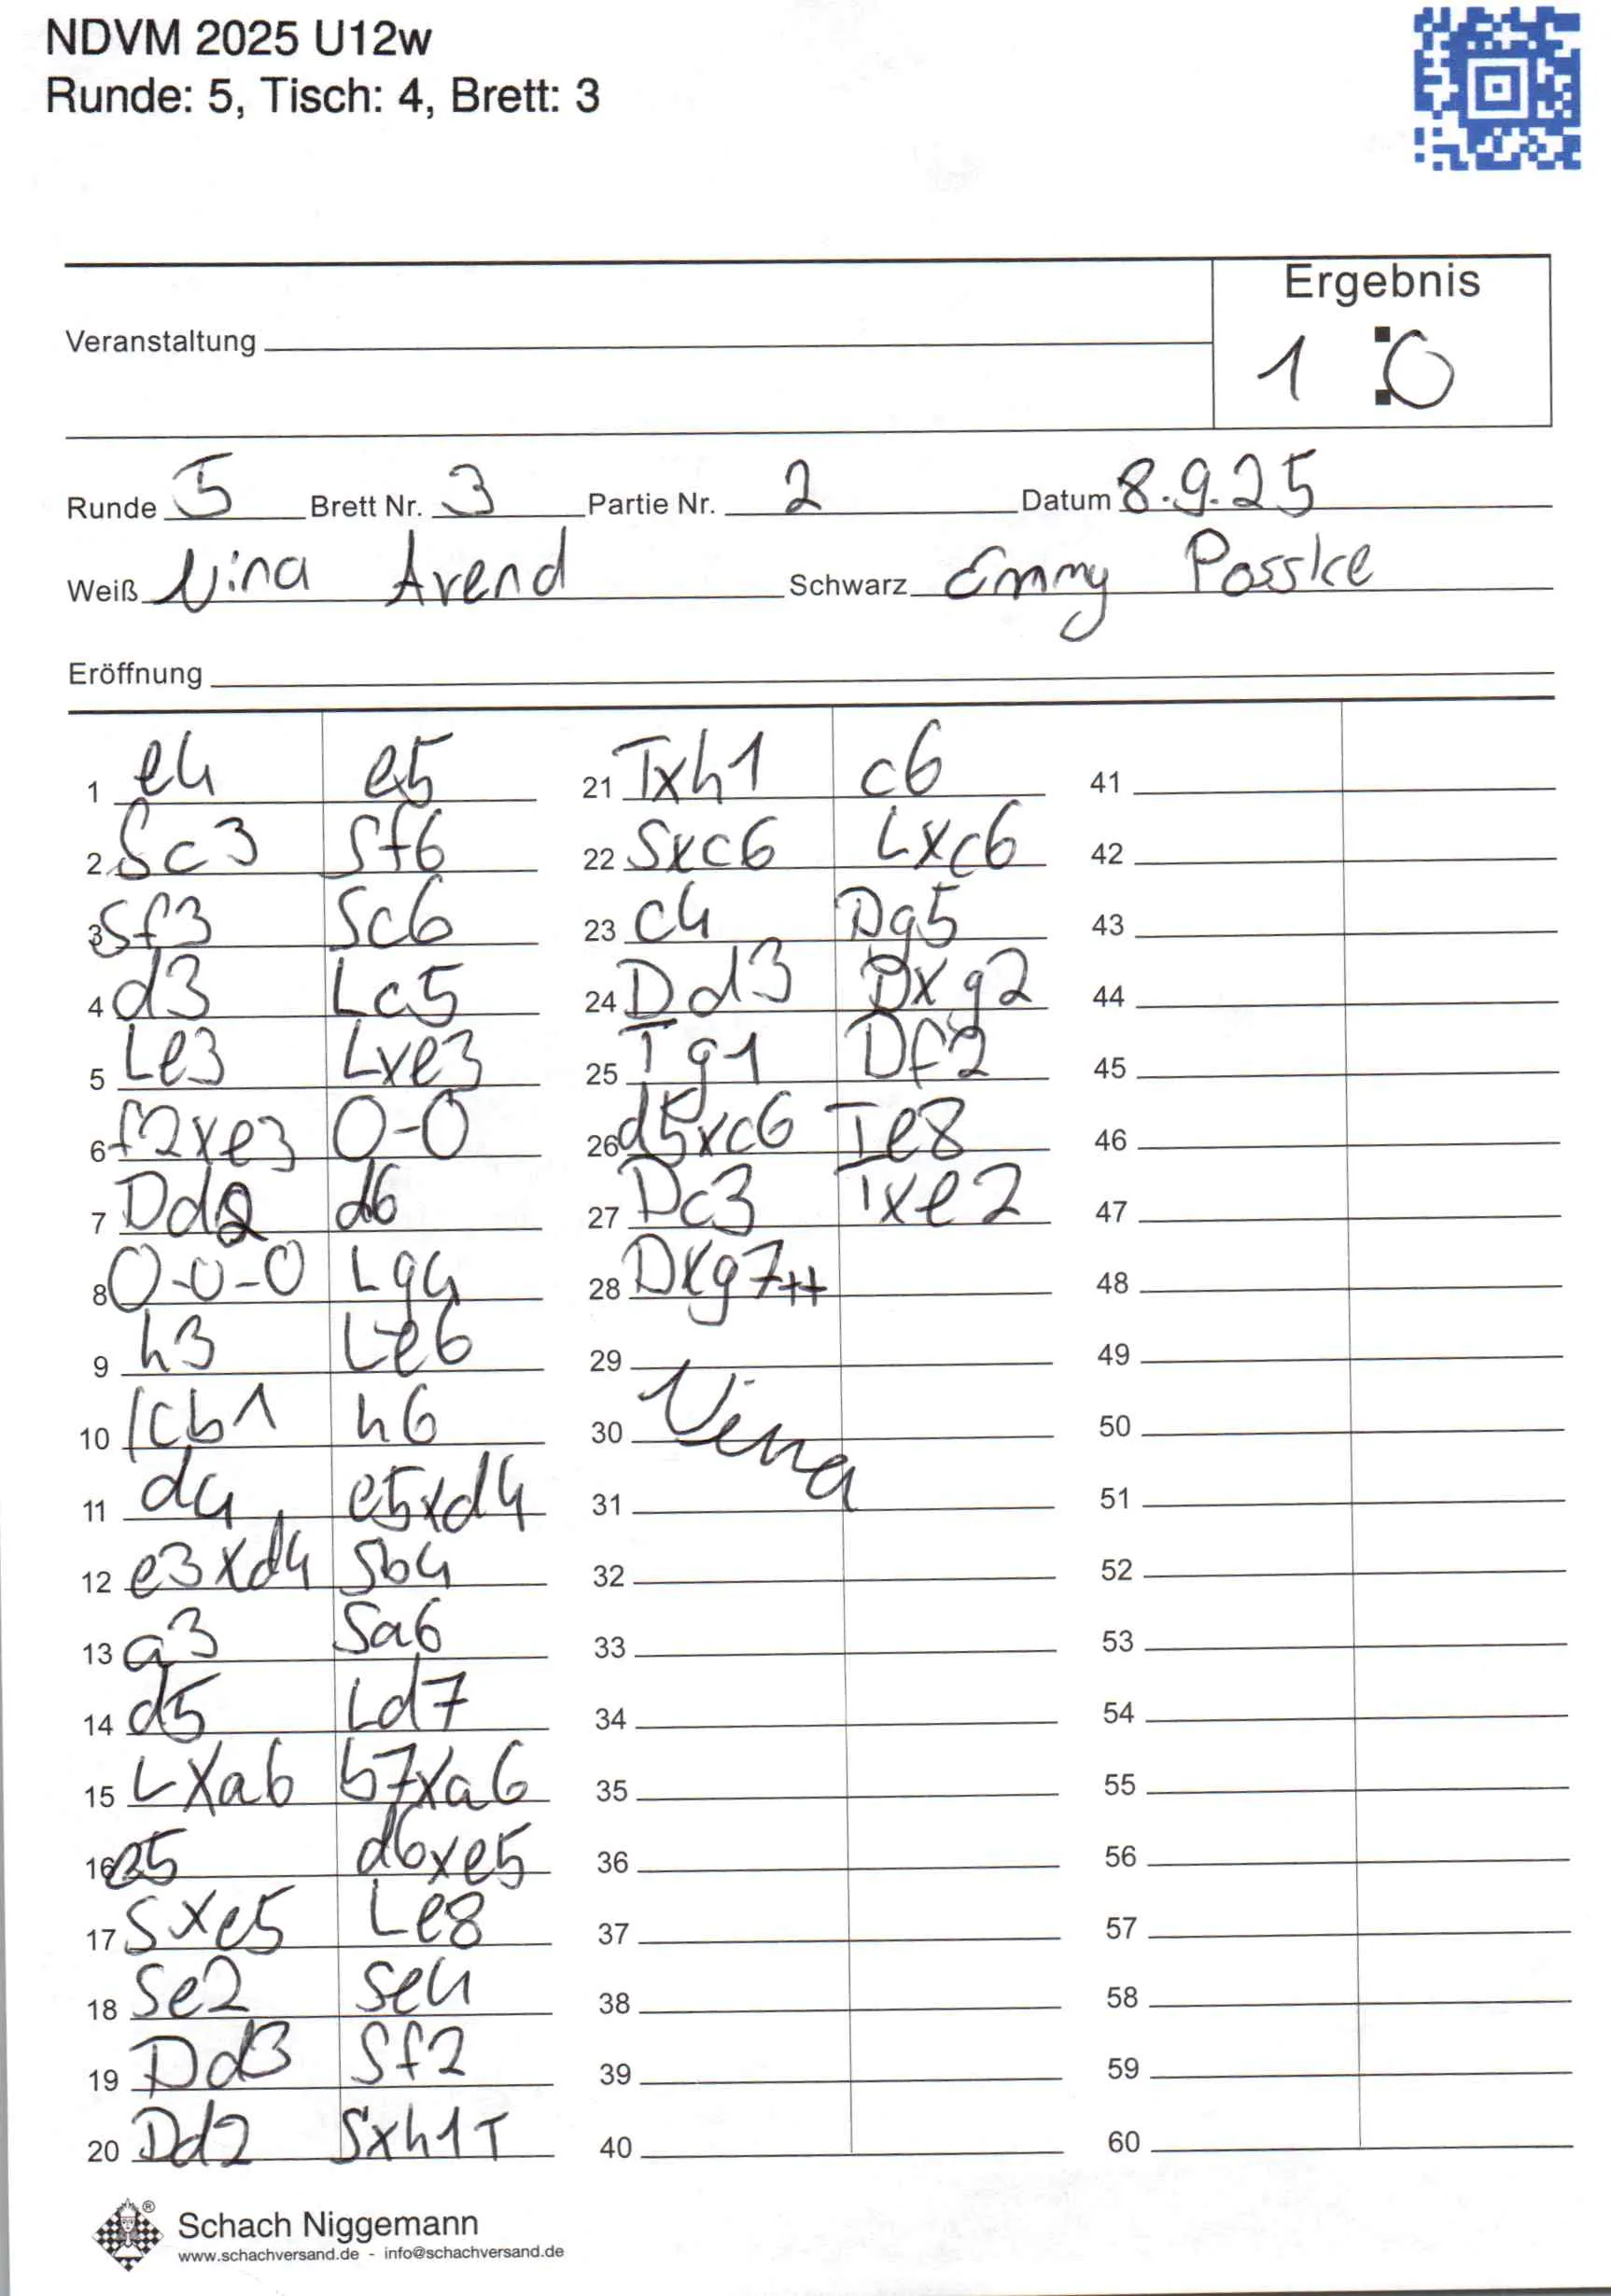 NDVM 2025 U12w
Runde: 5, Tisch: 4, Brett: 3
Ergebnis
Veranstaltung
1 : 0
Runde 5 Brett Nr. 3 Partie Nr. 2 Datum 8.9.25
Weiß Nina Arend Schwarz Emmy Posske
Eröffnung
1 e4 e5 21 Txh1 c6 41
2 Sc3 Sf6 22 Sxc6 Lxc6 42
3 Sf3 Sc6 23 c4 Dg5 43
4 d3 Lc5 24 Dd3 Dxg2 44
5 Le3 Lxe3 25 Tg1 Df2 45
6 f2xe3 0-0 26 d5xc6 Te8 46
7 Dd2 d6 27 Dc3 Txe2 47
8 0-0-0 Lg4 28 Dxg7++ 48
9 h3 Le6 29 49
10 Kb1 h6 30 Nina 50
11 d4 e5xd4 31 51
12 e3xd4 Sb4 32 52
13 a3 Sa6 33 53
14 d5 Ld7 34 54
15 LXa6 b7Xa6 35 55
16 e5 d6xe5 36 56
17 Sxe5 Le8 37 57
18 Se2 Se4 38 58
19 Dd3 Sf2 39 59
20 Dd2 Sxh1T 40 60
® Schach Niggemann
www.schachversand.de - info@schachversand.de